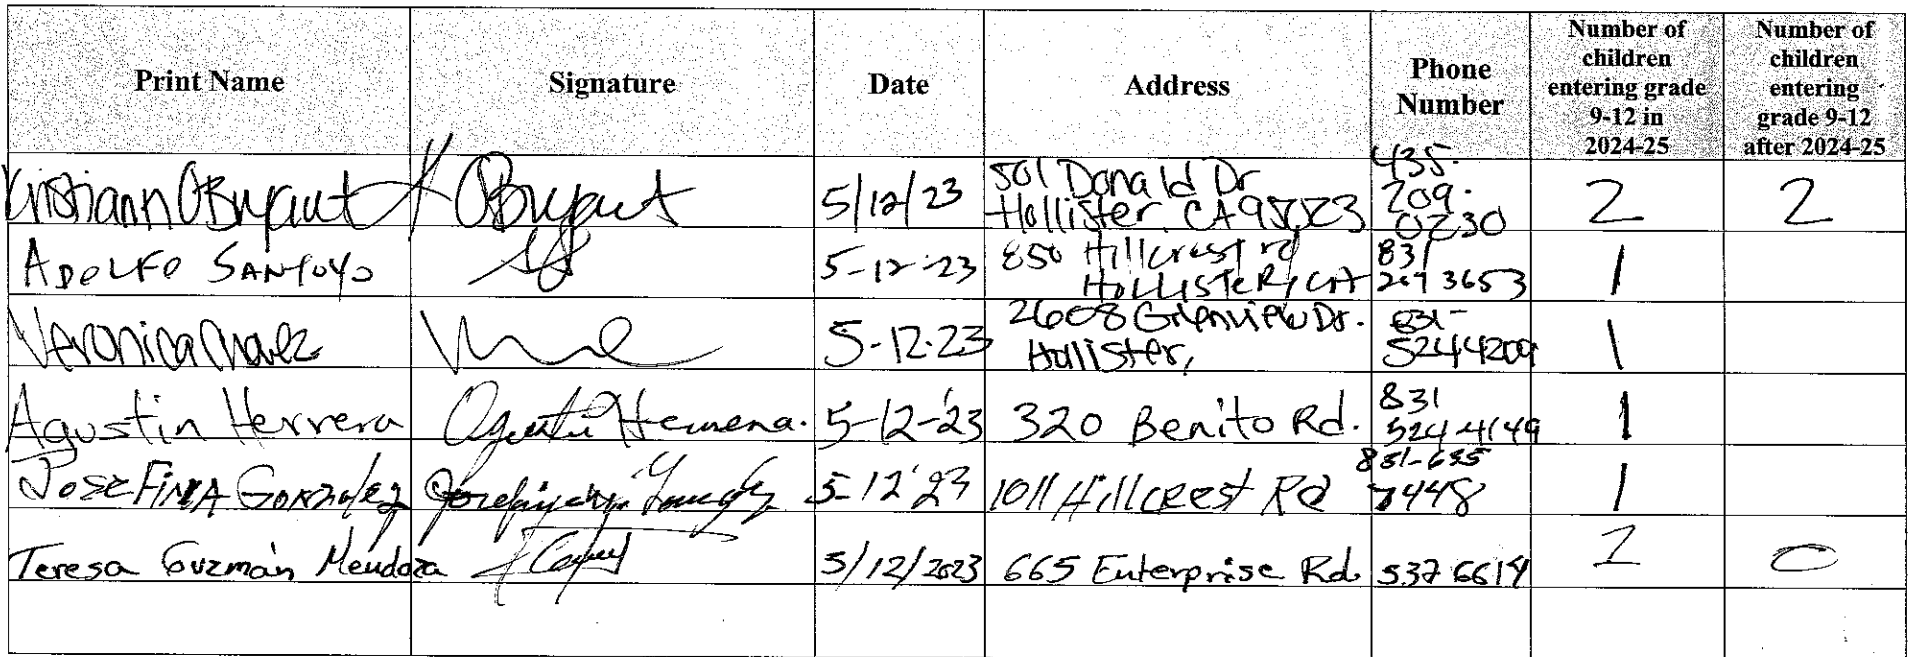 Print Name Signature Date Address Phone Number Number of children entering grade 9-12 in 2024-25 Number of children entering grade 9-12 after 2024-25
Kristiann OBryant K OBryant 5/12/23 501 Donald Dr Hollister, CA 95023 435-209-0230 2 2
ADOLFO SANTOYO 5-12-23 850 Hillcrest rd HOLLISTER, CA 831 3653 1
Veronica Chavez 5-12-23 2608 Glenview Dr. Hollister, 831-5244209 1
Agustin Herrera Agustin Herrera. 5-12-23 320 Benito Rd. 831 524-4149 1
JOSEFINA GONZALEZ 5-12 23 1011 Hillcrest Rd 831-635 7448 1
Teresa Guzmán Mendoza 5/12/2023 665 Enterprise Rd. 537 6614 1 0